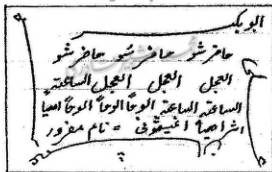 ابو بکر
حاضر شو حاضر شو حاضر شو
العجل العجل العجل الساعته
الساعته الساعته الوحاً الوحاً الوحاً اهیا
اشراهیا اغیثونی = نام مفرور